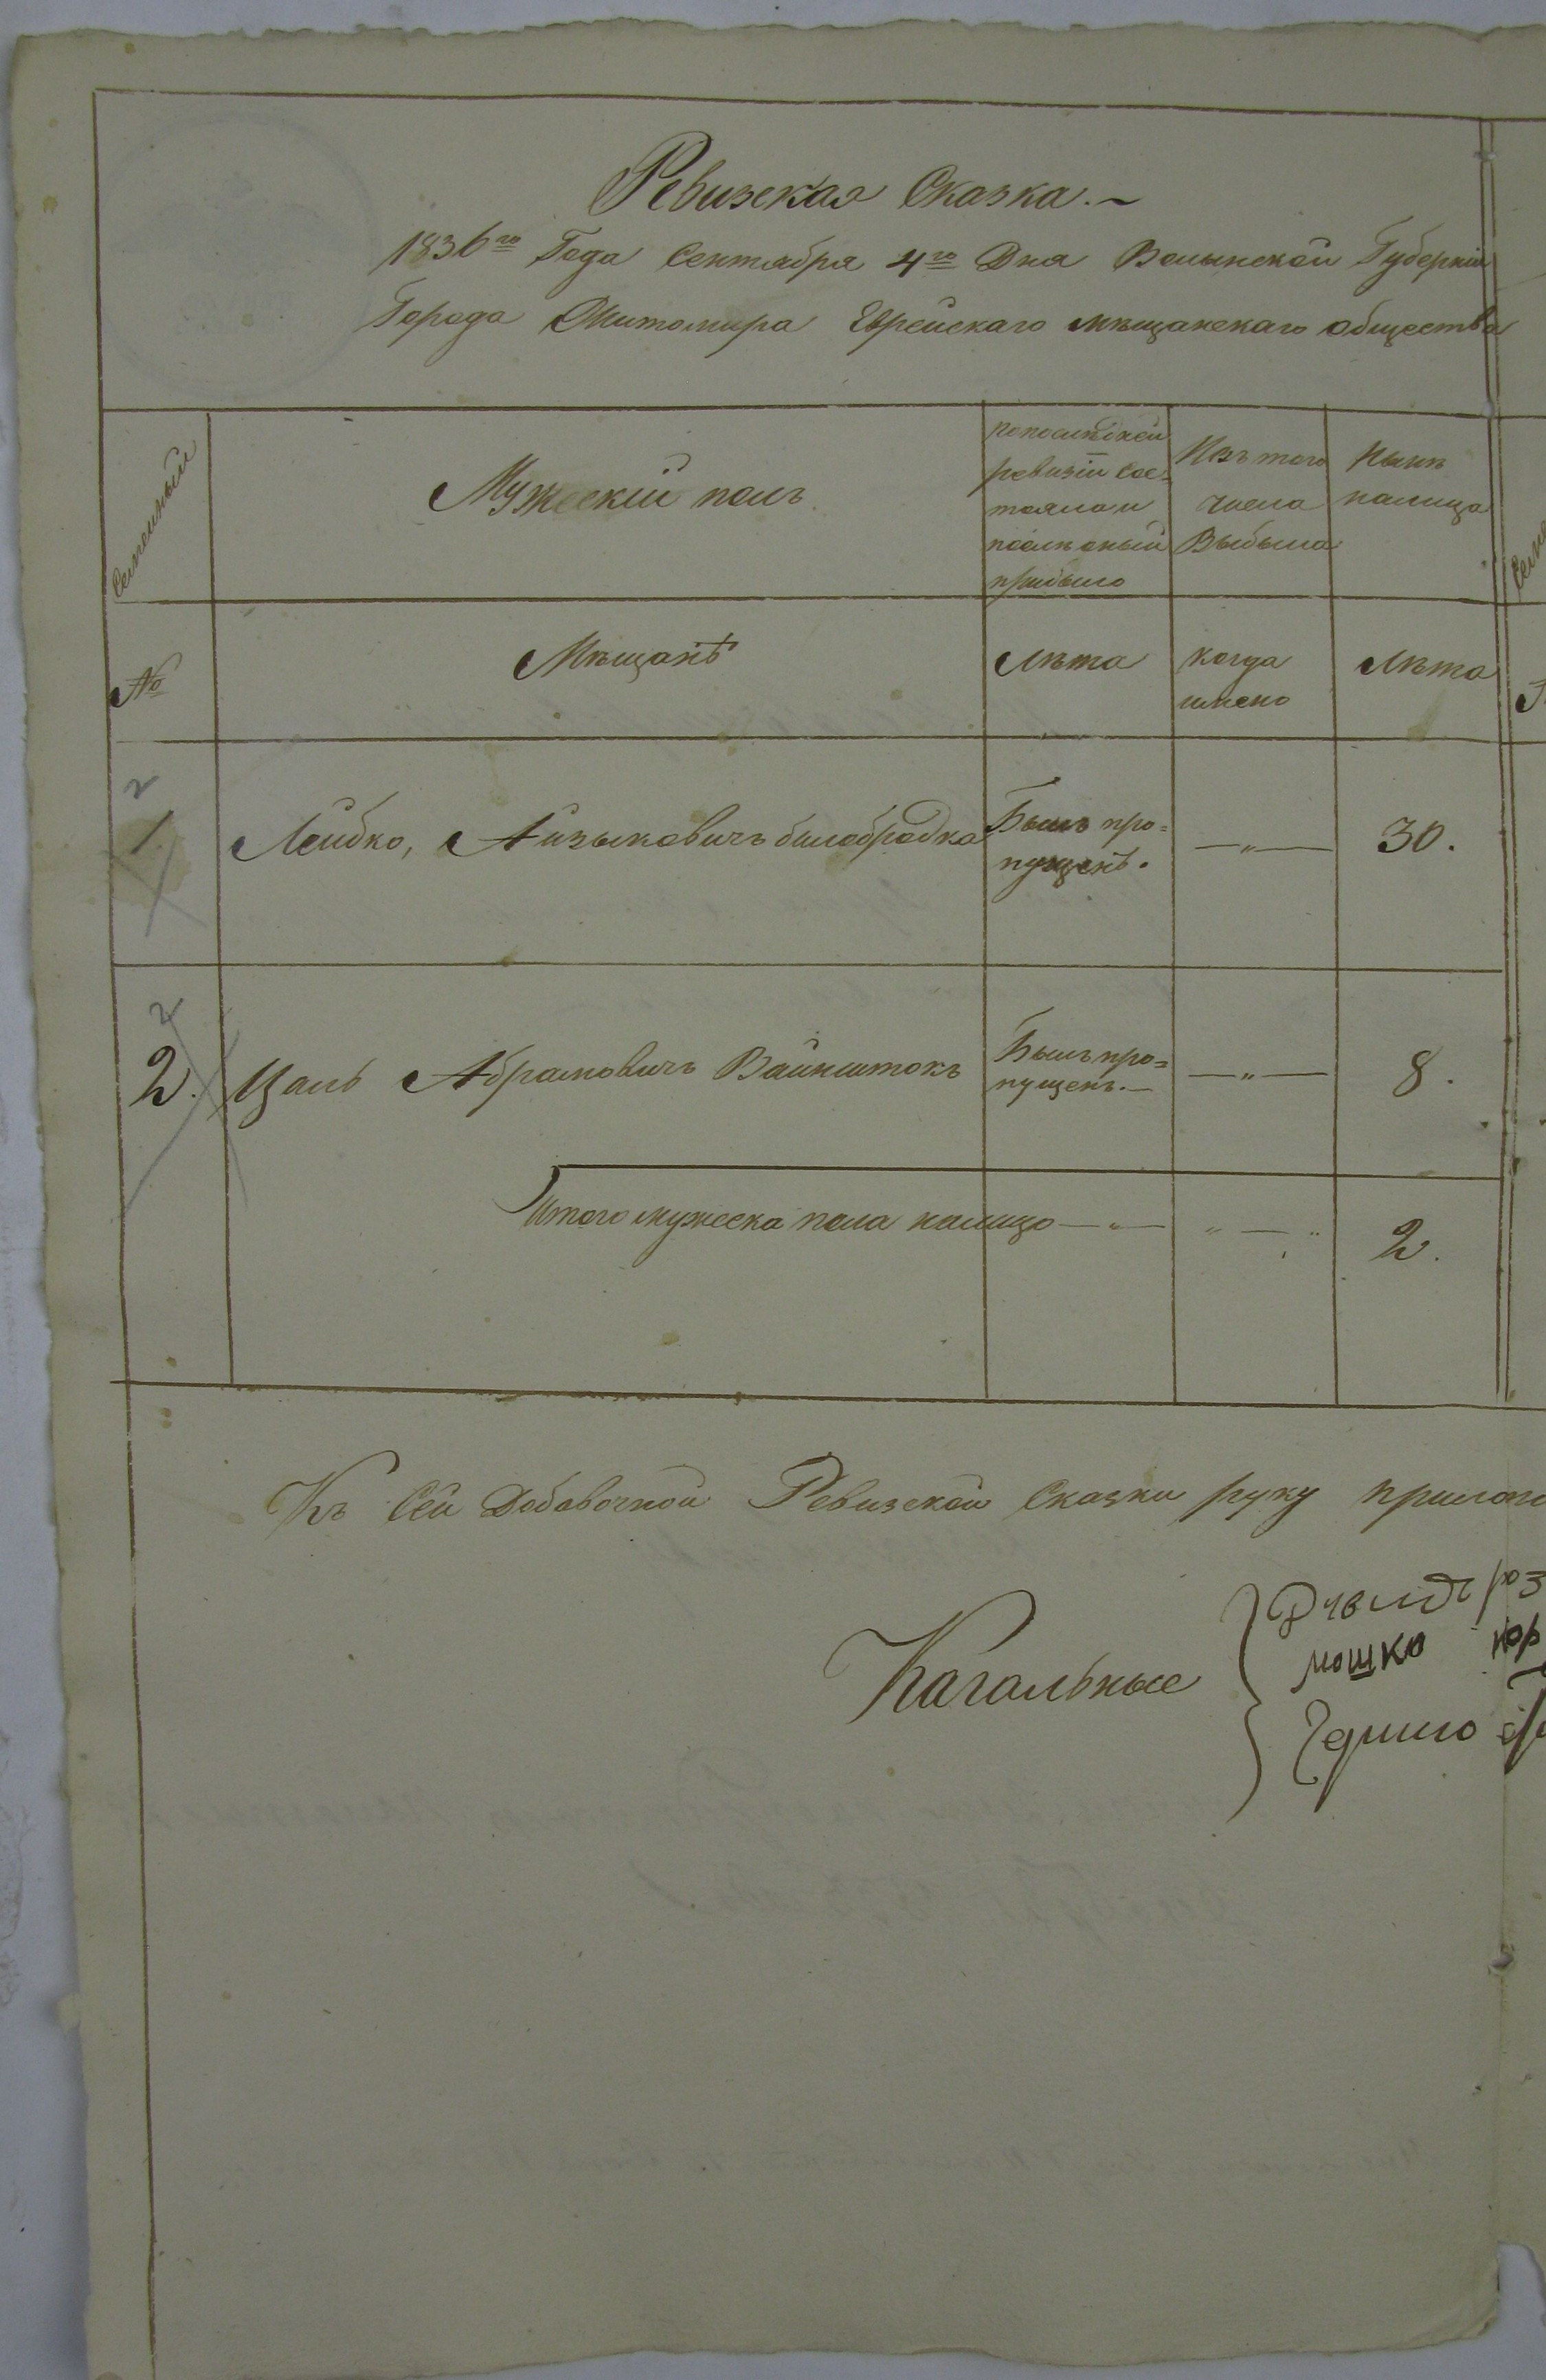 Ревизская Сказка.~
1836го Года Сентября 4го Дня Волынской Губерніи
Города Житомира Еврейскаго мѣщанскаго общества
Семейный
Мужескій полъ
по последней
ревизіи сос-
тояло и
послѣ оный
прибыло
Изъ того
числа
выбыло
Нынѣ
налицо
№
Мѣщанѣ
Лѣта
когда
имено
Лѣта
2
1.
Лейбко, Айзыковичъ билобродка
Былъ про=
пущенъ.
—„—
30.
2
2.
Цаль Абрамовичъ Вайнштокъ
Былъ про=
пущенъ.—
—„—
8.
Итого мужеска пола налицо —„— „ — „
2.
Къ Сей Добавочной Ревизской Сказки руку прилож
Кагальные
мошко